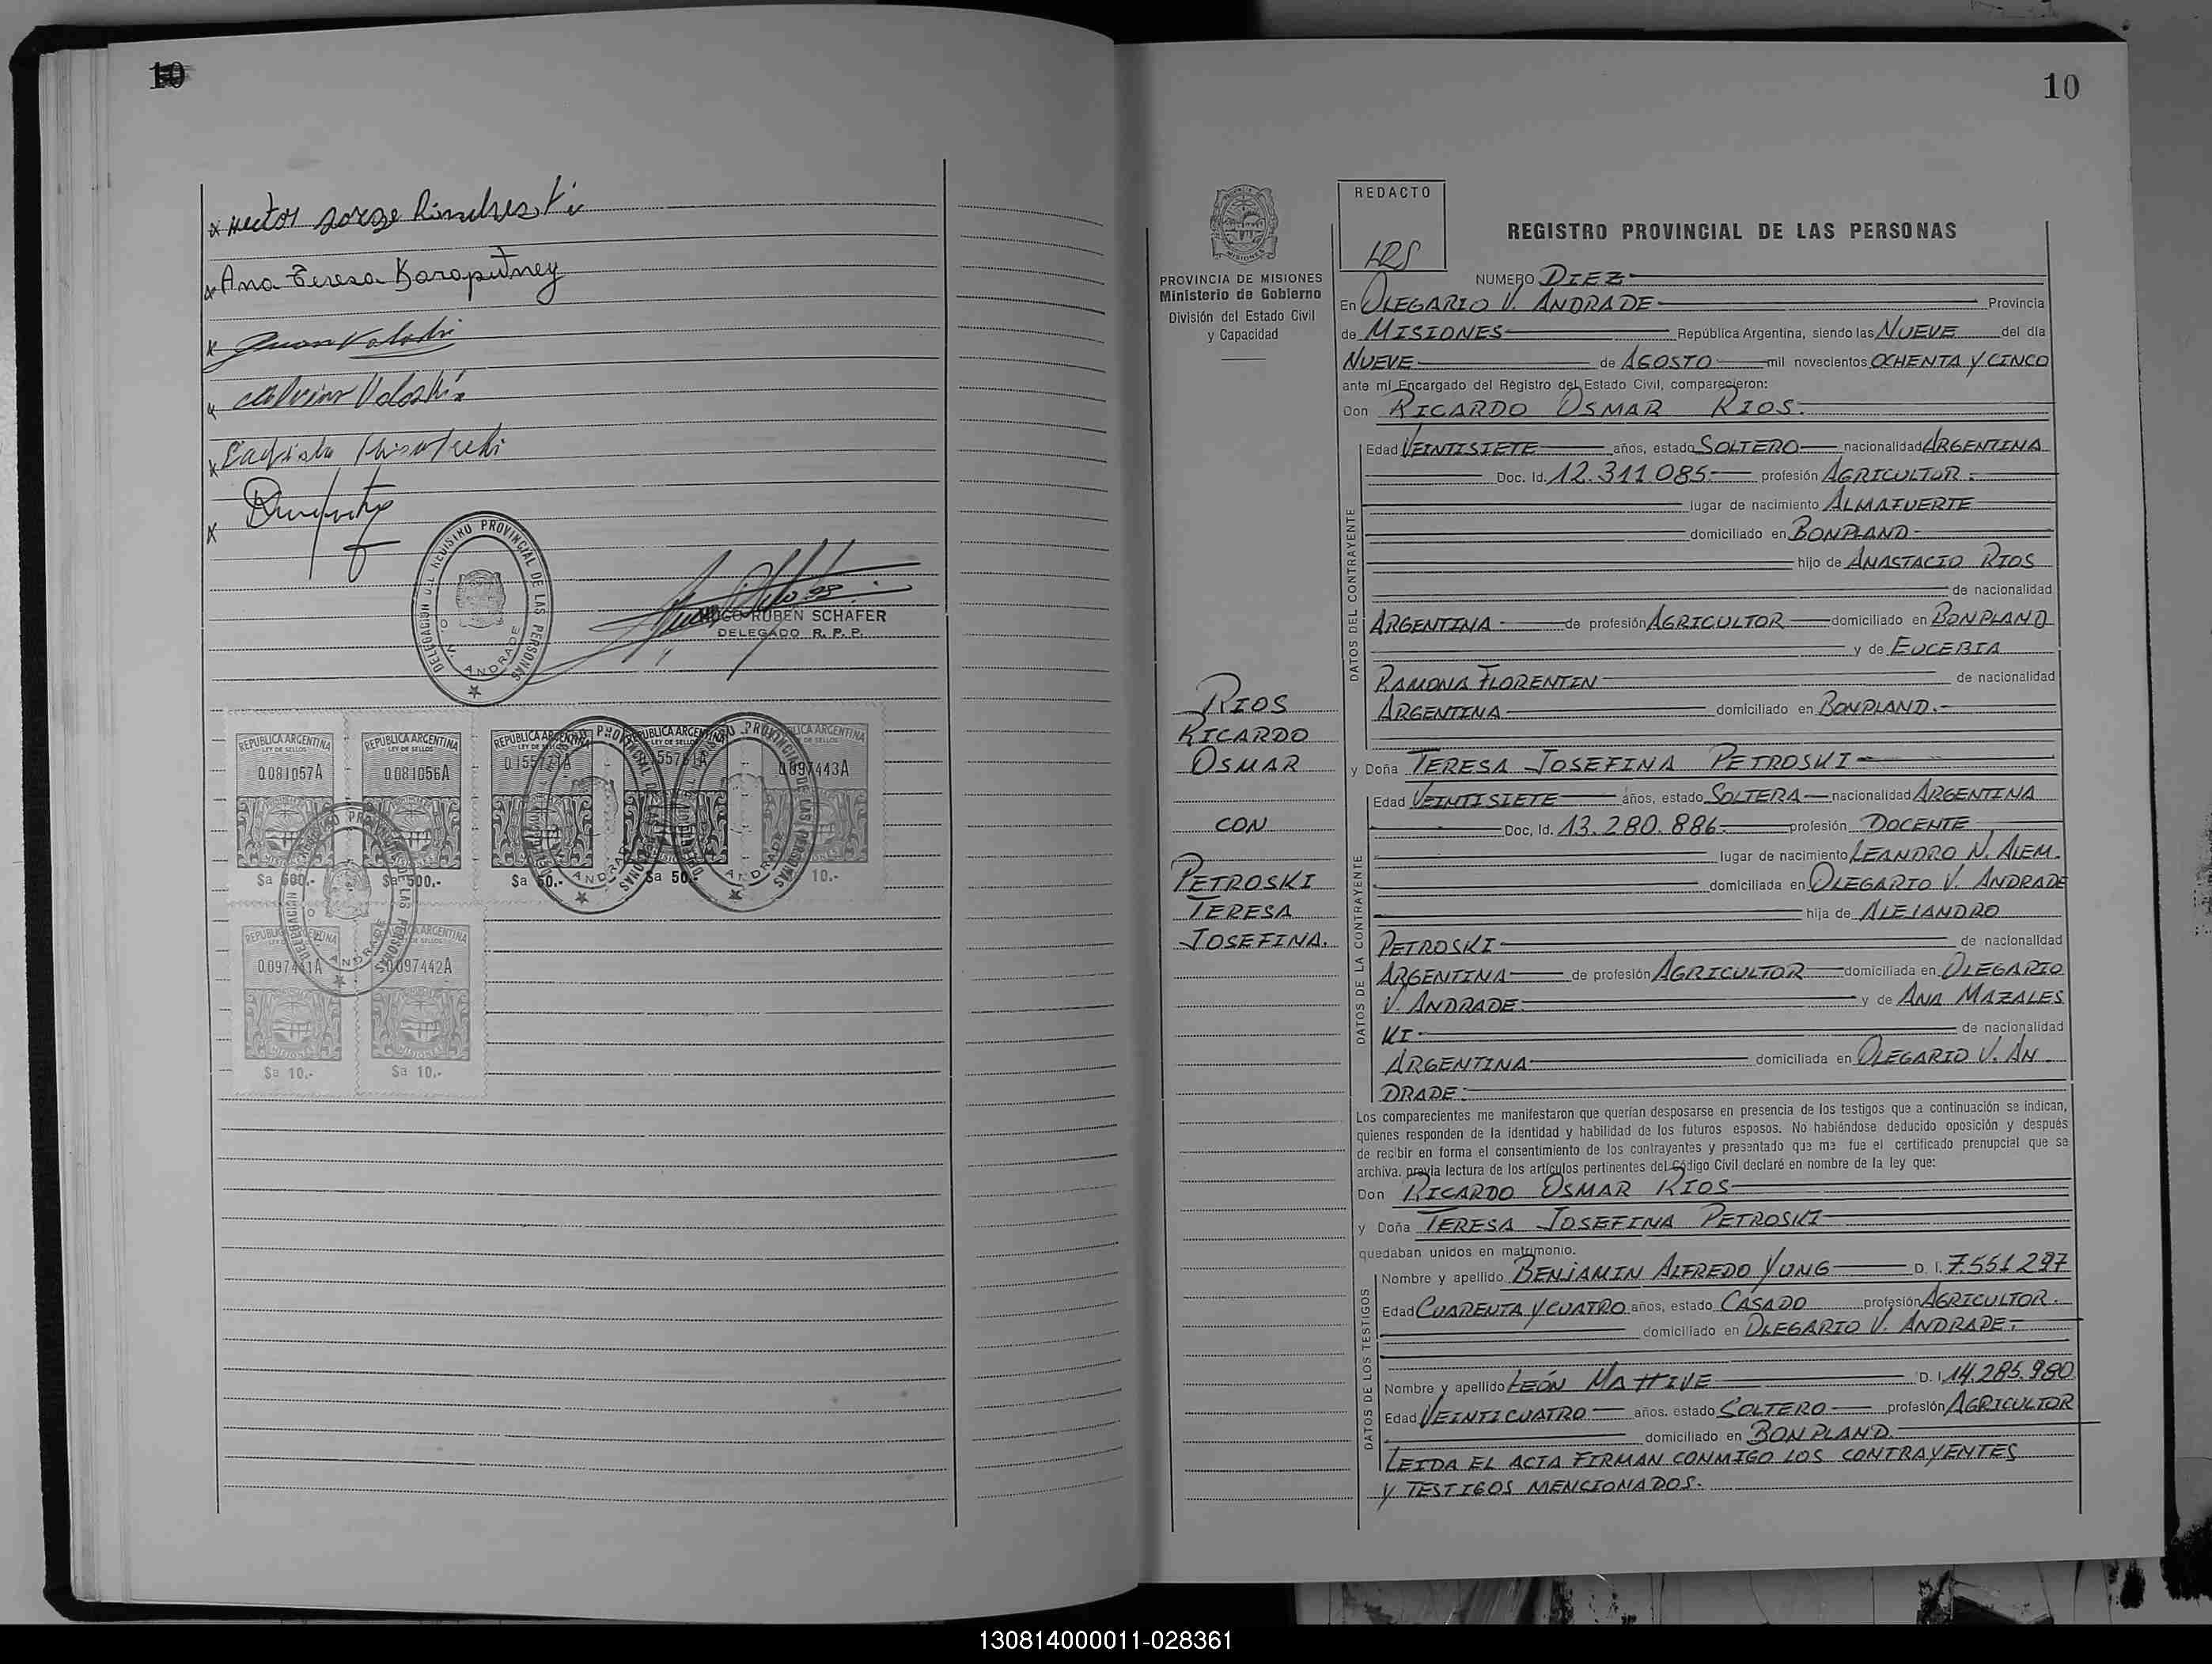 10
Hector Jorge
Ana Teresa Karaputney
Juan Voloski
Voloski
DELEGACION DEL REGISTRO PROVINCIAL DE LAS PERSONAS
O. V. ANDRADE
HUGO RUBEN SCHAFER
DELEGADO R. P. P.
REPUBLICA ARGENTINA REPUBLICA ARGENTINA REPUBLICA ARGENTINA REPUBLICA ARGENTINA REPUBLICA ARGENTINA
LEY DE SELLOS LEY DE SELLOS LEY DE SELLOS LEY DE SELLOS LEY DE SELLOS
0081057A 0081056A 0097443A
MISIONES MISIONES
$a 500.- $a 500.- $a 50.- $a 50.- 10.-
REPUBLICA ARGENTINA REPUBLICA ARGENTINA
0097441A 0097442A
MISIONES MISIONES
$a 10.- $a 10.-
10
MISIONES
PROVINCIA DE MISIONES
Ministerio de Gobierno
División del Estado Civil
y Capacidad
RIOS
RICARDO
OSMAR
CON
PETROSKI
TERESA
JOSEFINA.
REDACTO
HRS
REGISTRO PROVINCIAL DE LAS PERSONAS
NUMERO DIEZ
En OLEGARIO V. ANDRADE Provincia
de MISIONES República Argentina, siendo las NUEVE del día
NUEVE de AGOSTO mil novecientos OCHENTA Y CINCO
ante mí Encargado del Registro del Estado Civil, comparecieron:
Don RICARDO OSMAR RIOS.
DATOS DEL CONTRAYENTE
Edad VEINTISIETE años, estado SOLTERO nacionalidad ARGENTINA
Doc. Id. 12.311.085 profesión AGRICULTOR.
lugar de nacimiento ALMAFUERTE
domiciliado en BONPLAND
hijo de ANASTACIO RIOS
de nacionalidad
ARGENTINA de profesión AGRICULTOR domiciliado en BONPLAND
y de EUCEBIA
RAMONA FLORENTIN de nacionalidad
ARGENTINA domiciliado en BONPLAND.
y Doña TERESA JOSEFINA PETROSKI
DATOS DE LA CONTRAYENTE
Edad VEINTISIETE años, estado SOLTERA nacionalidad ARGENTINA
Doc. Id. 13.280.886 profesión DOCENTE
lugar de nacimiento LEANDRO N. ALEM.
domiciliada en OLEGARIO V. ANDRADE
hija de ALEJANDRO
PETROSKI de nacionalidad
ARGENTINA de profesión AGRICULTOR domiciliada en OLEGARIO
V. ANDRADE y de ANA MAZALES
KI de nacionalidad
ARGENTINA domiciliada en OLEGARIO V. AN
DRADE.
Los comparecientes me manifestaron que querían desposarse en presencia de los testigos que a continuación se indican,
quienes responden de la identidad y habilidad de los futuros esposos. No habiéndose deducido oposición y después
de recibir en forma el consentimiento de los contrayentes y presentado que me fue el certificado prenupcial que se
archiva. previa lectura de los artículos pertinentes del Código Civil declaré en nombre de la ley que:
Don RICARDO OSMAR RIOS
y Doña TERESA JOSEFINA PETROSKI
quedaban unidos en matrimonio.
DATOS DE LOS TESTIGOS
Nombre y apellido BENJAMIN ALFREDO YUNG D. I. 7.551.297
Edad CUARENTA Y CUATRO años, estado CASADO profesión AGRICULTOR.
domiciliado en OLEGARIO V. ANDRADE
Nombre y apellido LEÓN MATTIVE D. I. 14.285.980
Edad VEINTICUATRO años. estado SOLTERO profesión AGRICULTOR
domiciliado en BONPLAND.
LEIDA EL ACTA FIRMAN CONMIGO LOS CONTRAYENTES
Y TESTIGOS MENCIONADOS.
130814000011-028361